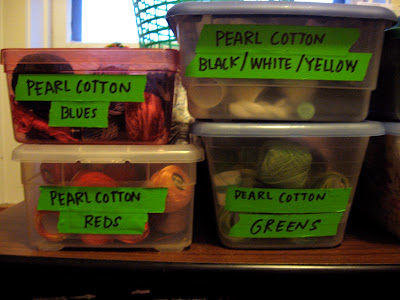 PEARL COTTON
BLUES
PEARL COTTON
BLACK/WHITE/YELLOW
PEARL COTTON
REDS
PEARL COTTON
GREENS